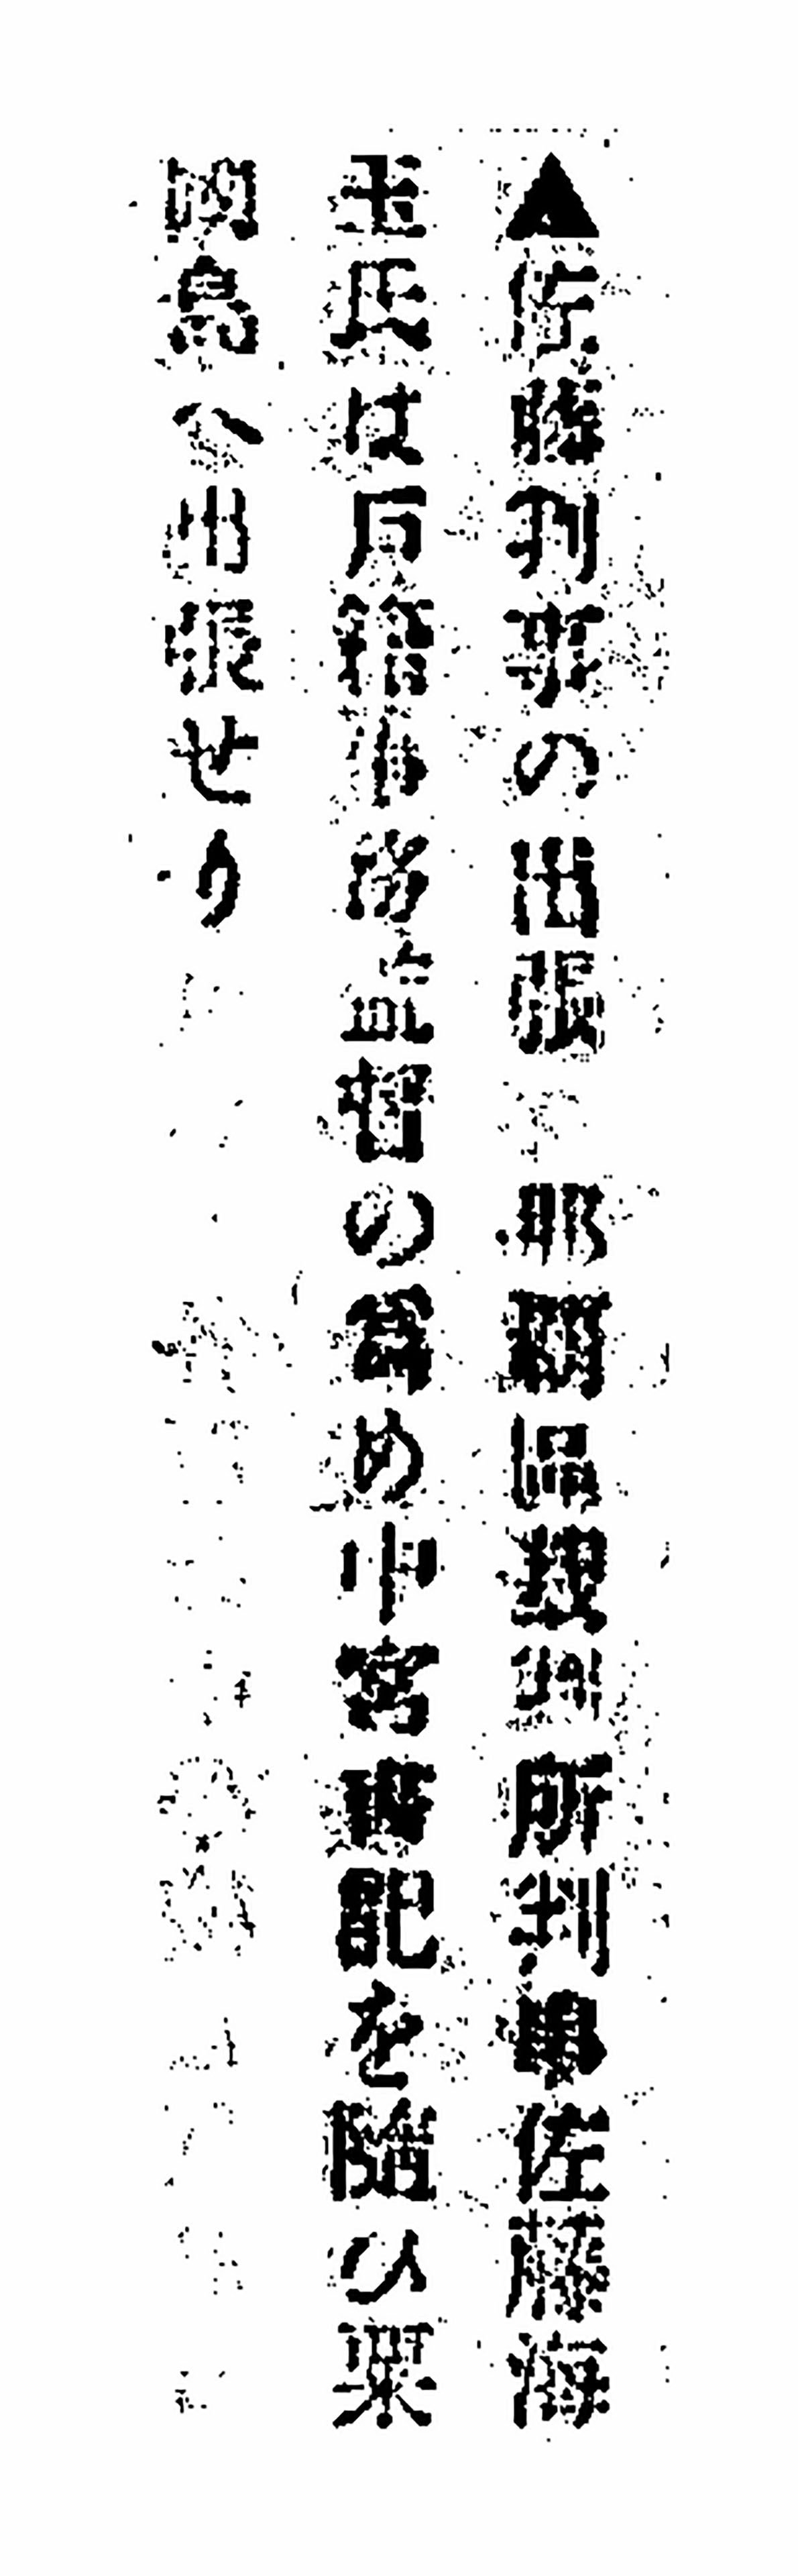 ▲佐藤判事の出張　那覇區裁判所判事佐藤海
玉氏は戸籍事務監督の爲め中宮書記を隨ひ粟
國島へ出張せり